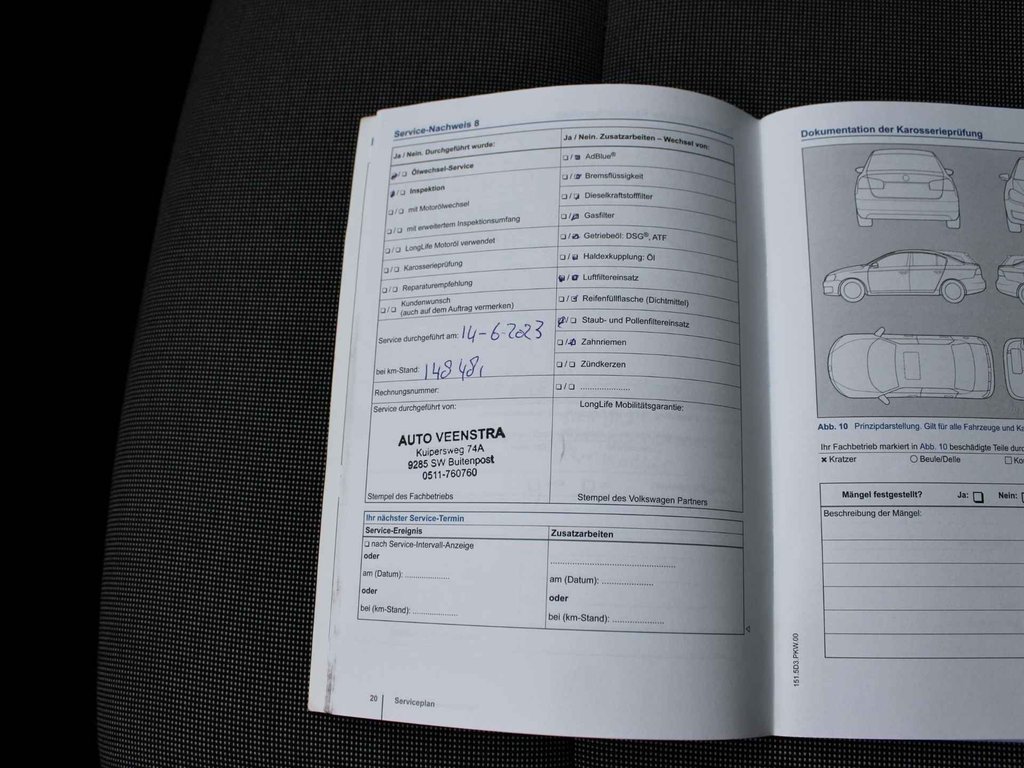 Service-Nachweis 8
Ja / Nein. Durchgeführt wurde:
Ölwechsel-Service
Inspektion
mit Motorölwechsel
mit erweitertem Inspektionsumfang
LongLife Motoröl verwendet
Karosserieprüfung
Reparaturempfehlung
Kundenwunsch
(auch auf dem Auftrag vermerken)
Service durchgeführt am: 14-6-2023
bei km-Stand:
Rechnungsnummer:
Service durchgeführt von:
AUTO VEENSTRA
Kuipersweg 74A
9285 SW Buitenpost
0511-760760
Stempel des Fachbetriebs
Ja / Nein. Zusatzarbeiten – Wechsel von:
AdBlue®
Bremsflüssigkeit
Dieselkraftstofffilter
Gasfilter
Getriebeöl: DSG®, ATF
Haldexkupplung: Öl
Luftfiltereinsatz
Reifenfüllflasche (Dichtmittel)
Staub- und Pollenfiltereinsatz
Zahnriemen
Zündkerzen
LongLife Mobilitätsgarantie:
Stempel des Volkswagen Partners
Ihr nächster Service-Termin
Service-Ereignis
nach Service-Intervall-Anzeige
oder
am (Datum): ....................
oder
bei (km-Stand): ....................
Zusatzarbeiten
am (Datum): ....................
oder
bei (km-Stand): ....................
20 Serviceplan
Dokumentation der Karosserieprüfung
Abb. 10 Prinzipdarstellung. Gilt für alle Fahrzeuge und
Ihr Fachbetrieb markiert in Abb. 10 beschädigte Teile
Kratzer
Beule/Delle
Mängel festgestellt? Ja: Nein:
Beschreibung der Mängel:
151.5D3.PKW.00